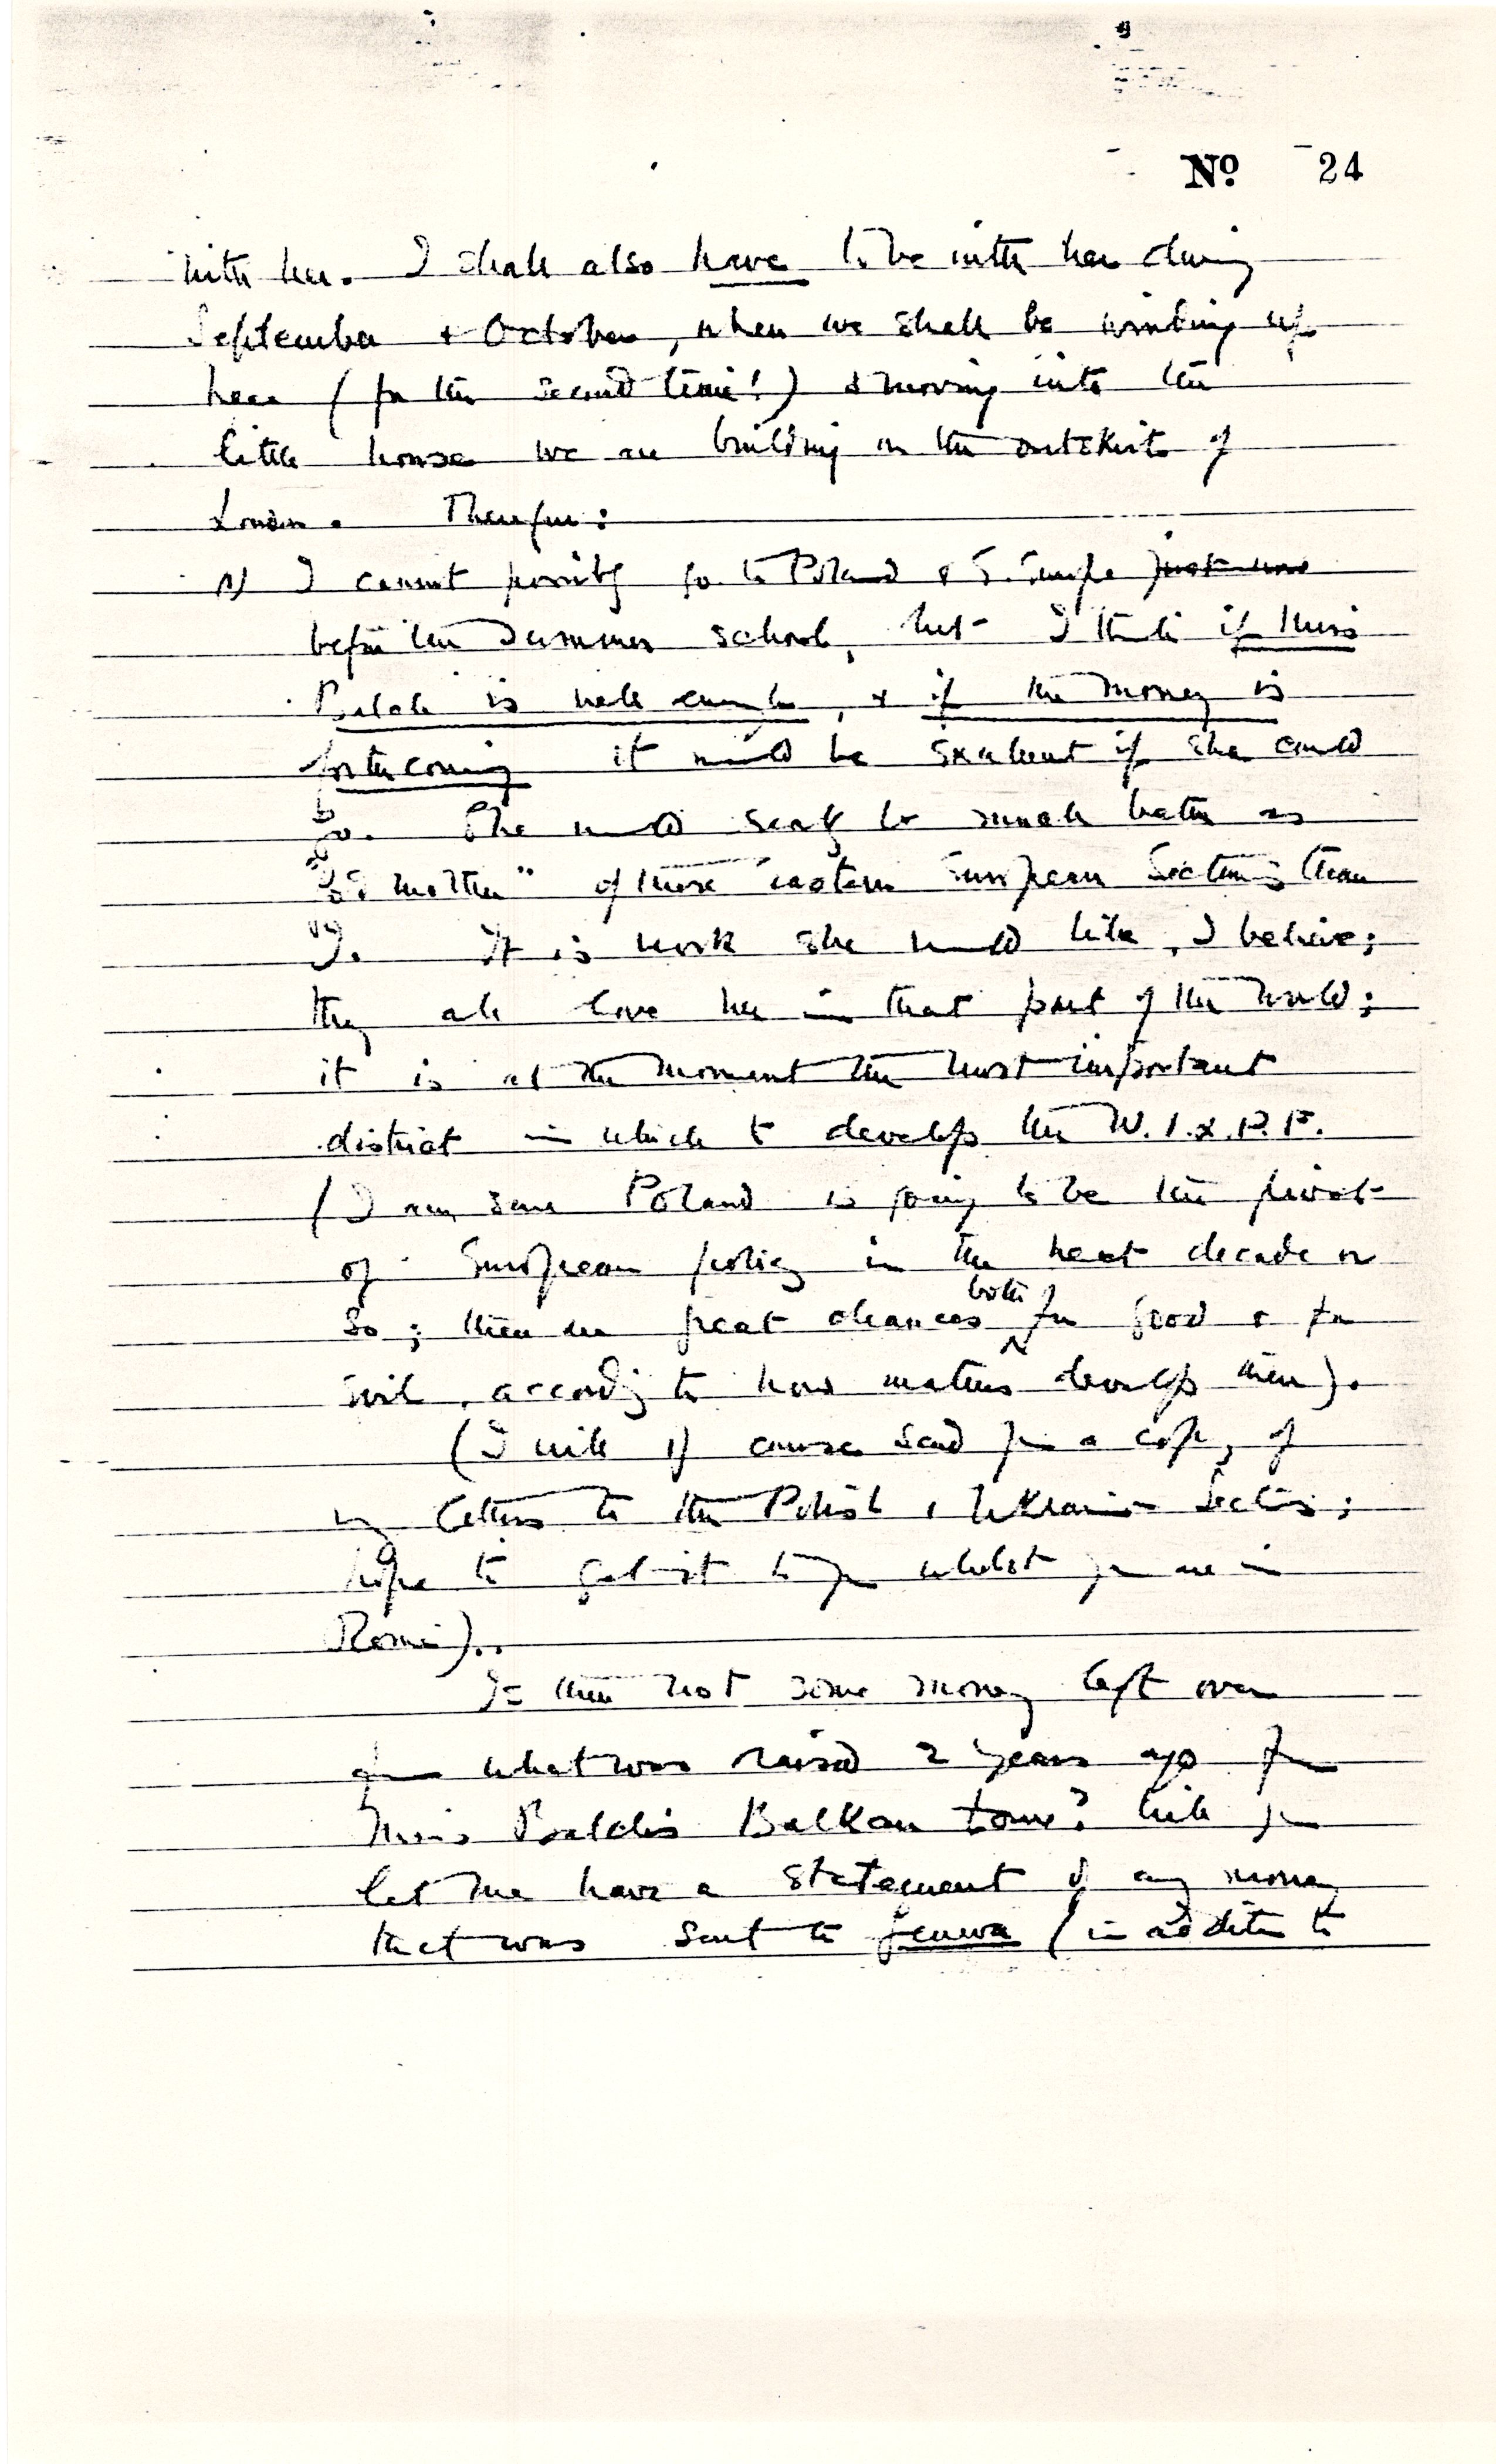 No 24
with her. I shall also have to be with her during
September & October, when we shall be winding up
here (for the second time!) & moving into the
little house we are building on the outskirts of
London. Therefore:
1) I cannot possibly go to Poland & E. Europe just now
before the Summer School, but I think if Miss
Balch is well enough, & if the money is
forthcoming it would be excellent if she could
go. She would really be much better as
"mother" of those eastern European Sections than
I. It is work she would like, I believe;
they all love her in that part of the world;
it is at the moment the most important
district in which to develop the W.I.L.P.F.
(I am sure Poland is going to be the pivot
of European policy in the next decade or
so; there are great chances both for good & for
evil, according to how matters develop there).
(I will of course send you a copy of
my letters to the Polish & Ukrainian Sections;
hope to get it to you whilst you are in
Rome).
Is there not some money left over
from what was raised 2 years ago for
Miss Balch's Balkan tour? Will you
let me have a statement of any money
that was sent to Geneva (in addition to